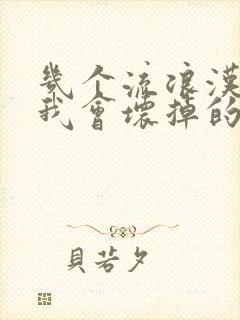 幾个流浪漢
我會壞掉的
貝若夕